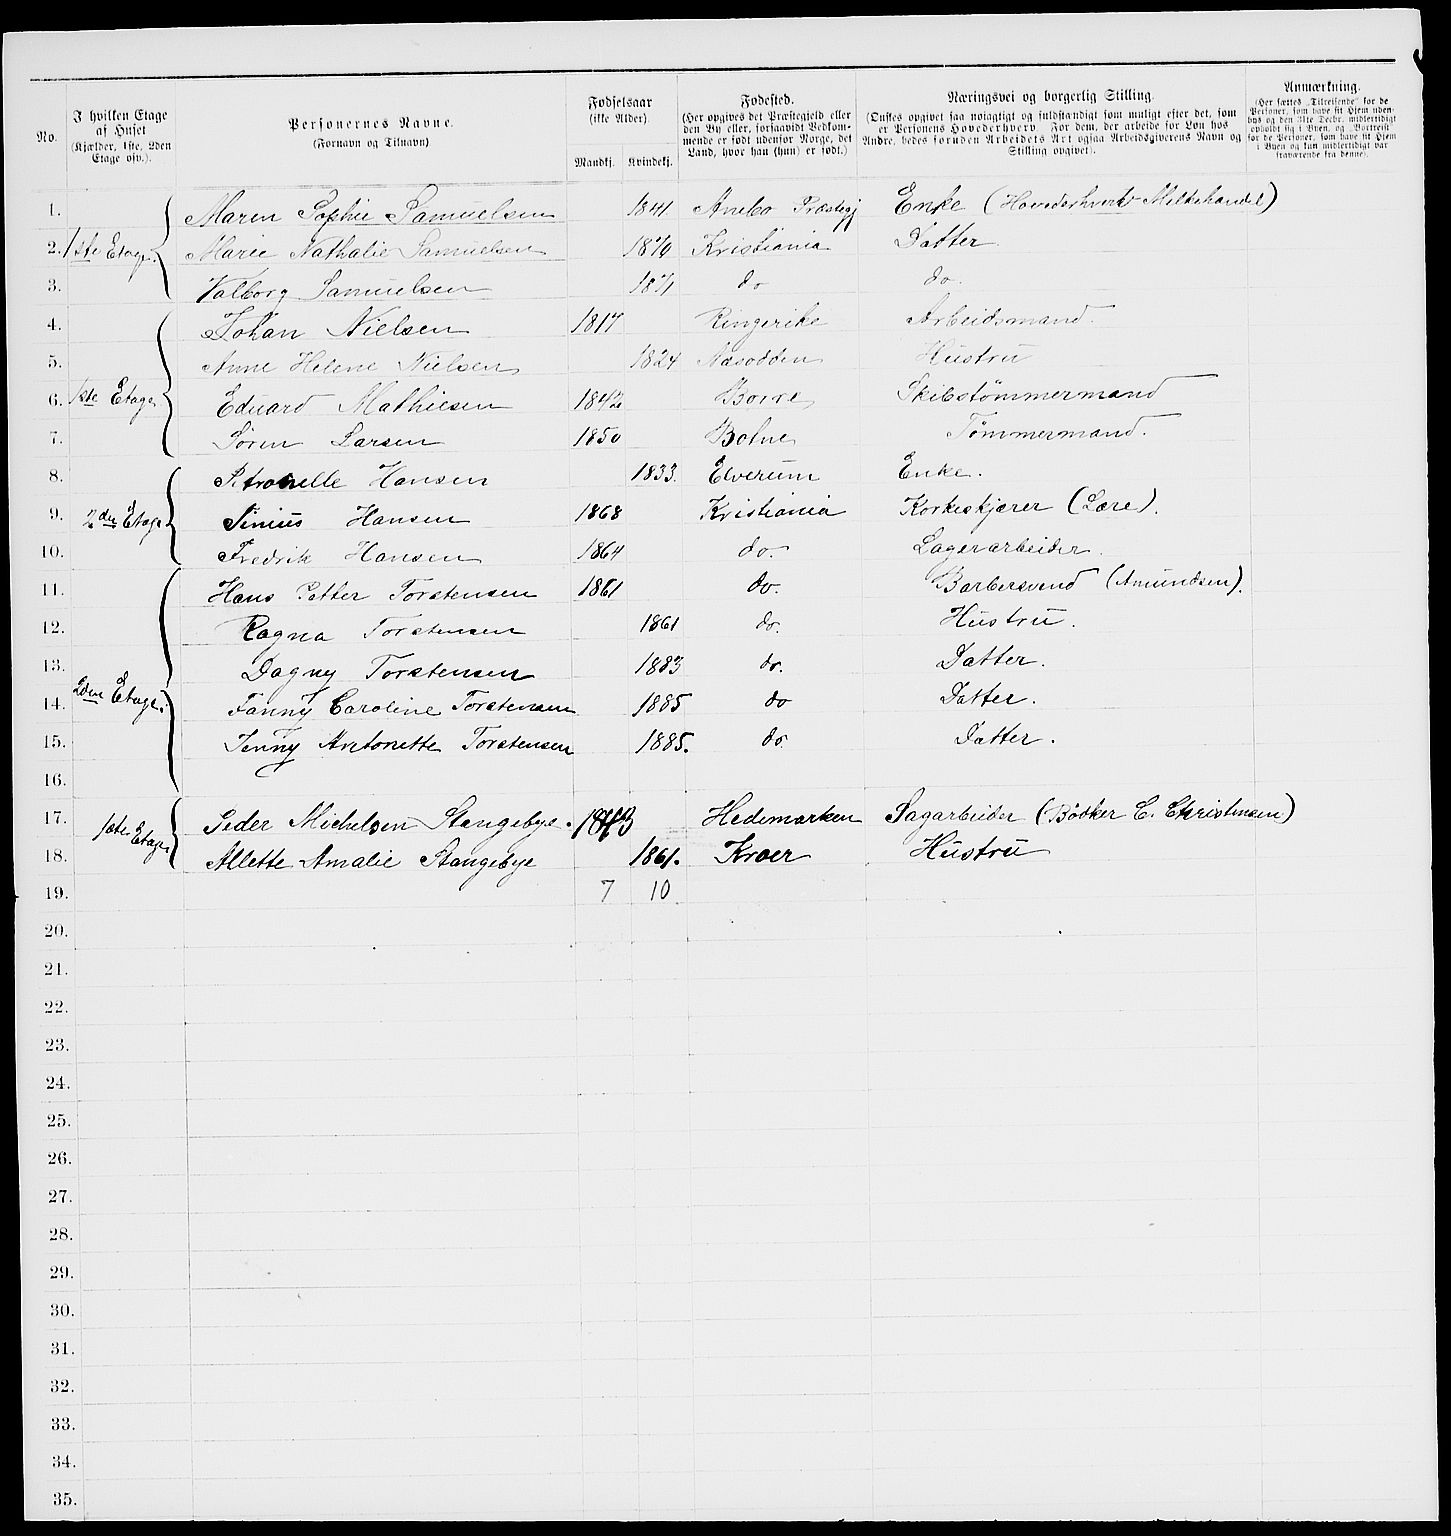 No.
I hvilken Etage
af Huset
(Kjælder, 1ste, 2den
Etage osv.).
Personernes Navne.
(Fornavn og Tilnavn)
Fødselsaar
(ikke Alder).
Mandkj. Kvindekj.
Fødested.
(Her opgives det Præstegjeld eller
den By eller, forsaavidt Vedkom-
mende er født udenfor Norge, det
Land, hvor han (hun) er født.)
Næringsvei og borgerlig Stilling.
(Ønskes opgivet saa nøiagtigt og fuldstændigt som muligt efter det, som
er Personens Hovederhverv. For dem, der arbeide for Løn hos
Andre, bedes foruden Arbeidets Art ogsaa Arbeidsgiverens Navn og
Stilling opgivet).
Anmærkning.
(Her sættes „Tilreisende" for de
Personer, som have sit Hjem uden-
bys og den 31te Decbr. midlertidigt
opholdt sig i Byen, og „Bortreist"
for de Personer, som have sit Hjem
i Byen og kun midlertidigt var
fraværende fra denne).
1. Maren Sophie Samuelsen 1841 Anebo Præstegj Enke (Hovederhverv Melkehandel)
2. 1ste Etage. Marie Nathalie Samuelsen Kristiania Datter
3. Valborg Samuelsen 1871 do do.
4. Johan Nielsen 1817 Ringerike Arbeidsmand.
5. Anne Helene Nielsen 1824 Næsodden Hustru
6. 1ste Etage Eduard Mathiesen 1842 Borre Skibstømmermand
7. Søren Larsen 1850 Botne Tømmermand.
8. Petronelle Hansen 1833. Elverum Enke.
9. 2den Etage Sinius Hansen 1868 Kristiania Korkeskjærer (Lære).
10. Fredrik Hansen 1864 do. Lagerarbeider.
11. Hans Petter Torstensen 1861 do. Barbersvend (Amundsen).
12. Ragna Torstensen 1861 do. Hustru.
13. Dagny Torstensen 1883 do. Datter.
14. 2den Etage. Fanny Caroline Torstensen 1885 do Datter.
15. Jenny Antonette Torstensen 1885. do. Datter.
16.
17. 1ste Etage. Peder Michelsen Stangebye. 1843 Hedemarken Sagarbeider (Bødker C. Christensen)
18. Allette Amalie Stangebye 1861. Kroer Hustru
19. 7 10
20.
21.
22.
23.
24.
25.
26.
27.
28.
29.
30.
31.
32.
33.
34.
35.